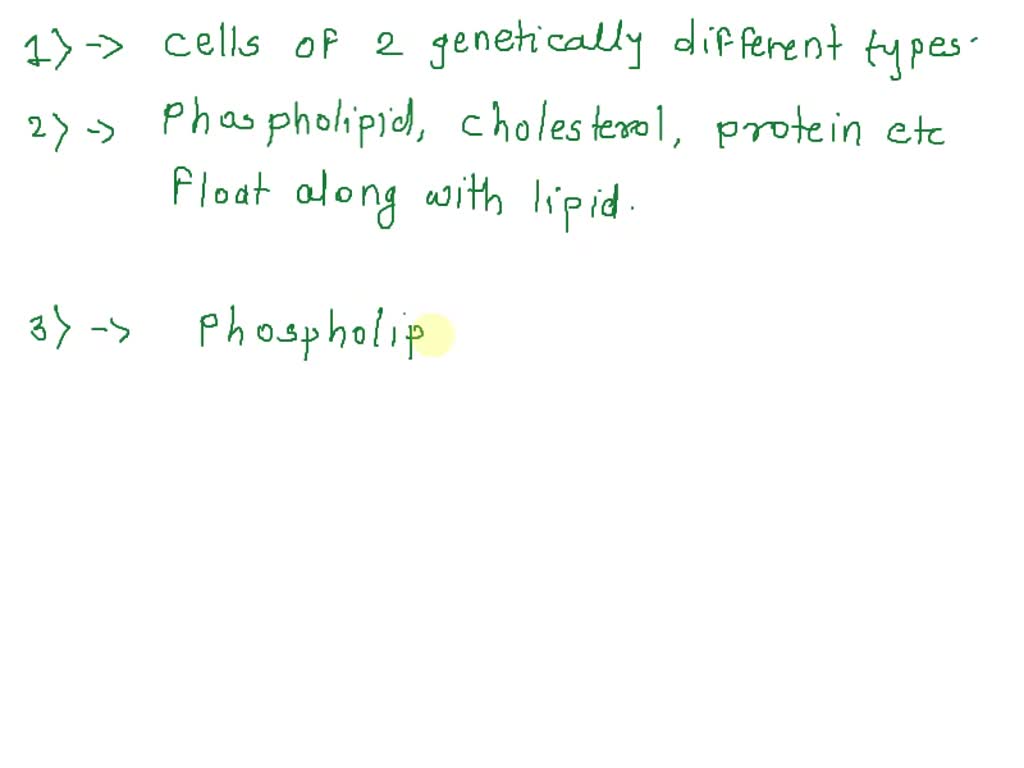 1) -> cells of 2 genetically different types.
2) -> Phospholipid, cholesterol, protein etc
float along with lipid.
3) -> Phospholip